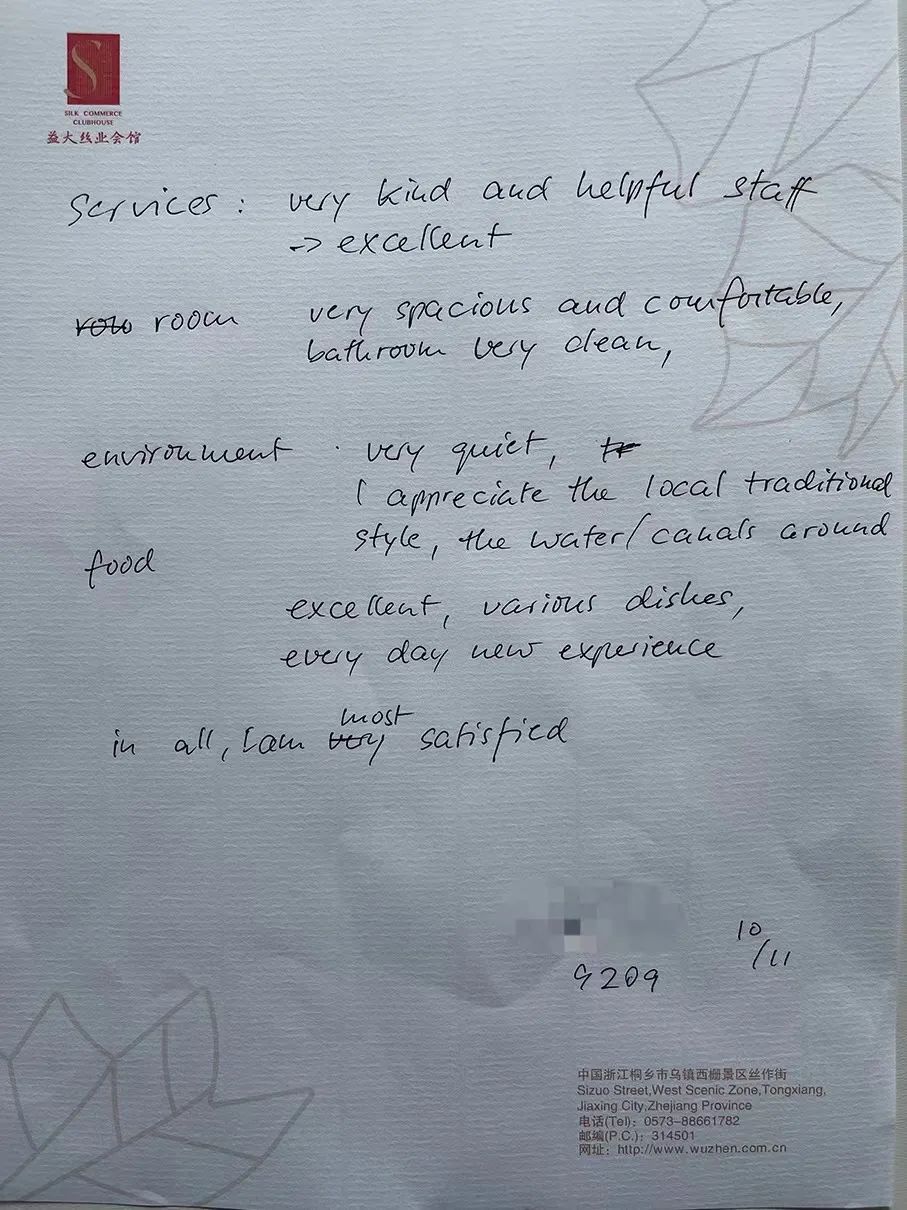 S
SILK COMMERCE
CLUBHOUSE
益大丝业会馆
Services: very kind and helpful staff
-> excellent
room very spacious and comfortable,
bathroom very clean,
environment · very quiet,
I appreciate the local traditional
style, the water/canals around
food
excellent, various dishes,
every day new experience
most
in all, I am very satisfied
10
/11
9209
中国浙江桐乡市乌镇西栅景区丝作街
Sizuo Street,West Scenic Zone,Tongxiang,
Jiaxing City,Zhejiang Province
电话(Tel): 0573-88661782
邮编(P.C.): 314501
网址: http://www.wuzhen.com.cn